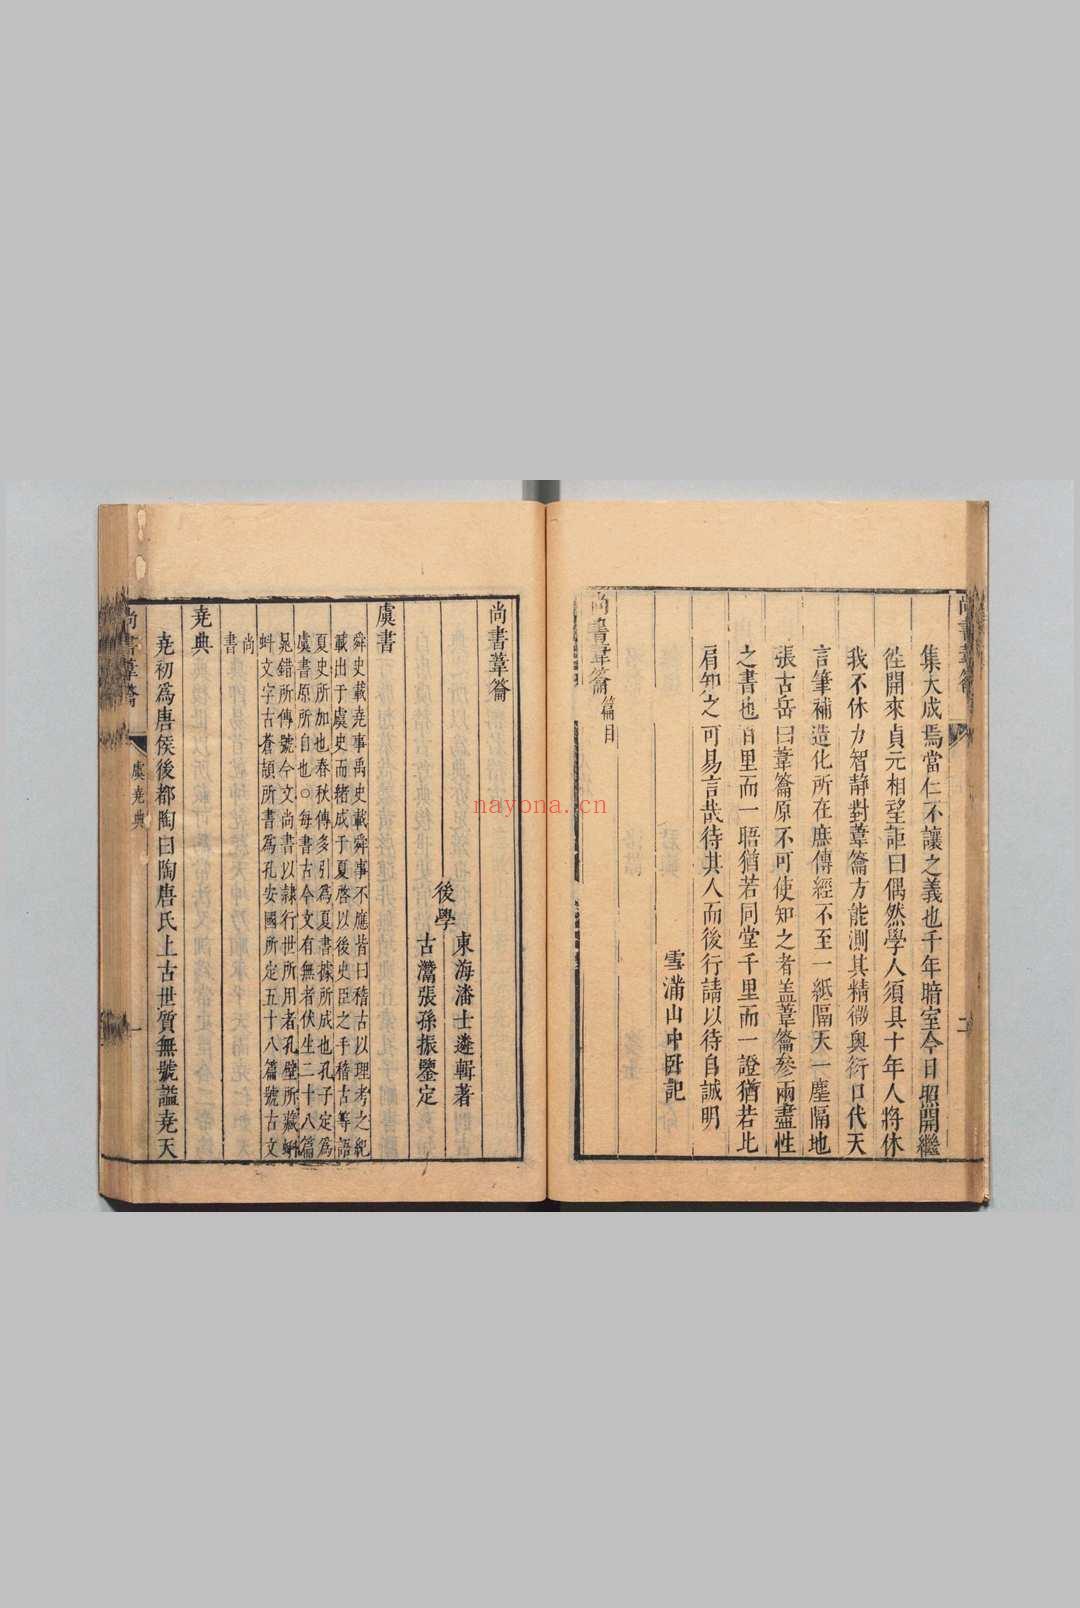 集大成焉當仁不讓之義也千年暗室今日照開繼
徃開來貞元相望詎曰偶然學人須具十年人將休
我不休力智靜對葦籥方能測其精微奧衍口代天
言筆補造化所在庶傳經不至一紙隔天一塵隔地
張古岳曰葦籥原不可使知之者盖葦籥參兩盡性
之書也百里而一晤猶若同堂千里而一證猶若比
肩知之可易言哉待其人而後行請以待自誠明
雪滿山中卧記
尚書葦籥 篇目
尚書葦籥
東海潘士遴輯著
後學
古灊張孫振鑒定
虞書
舜史載堯事禹史載舜事不應皆曰稽古以理考之紀
載出于虞史而緒成于夏啓以後史臣之手稽古等語
夏史所加也春秋傳多引為夏書據所成也孔子定為
虞書原所自也○每書古今文有無者伏生二十八篇
晁錯所傳號今文尚書以隸行世所用者孔壁所藏蝌
蚪文字古蒼頡所書為孔安國所定五十八篇號古文
尚
書
堯典
堯初為唐侯後都陶曰陶唐氏上古世質無號謚堯天
尚書葦籥
虞堯典
一
nayona.cn